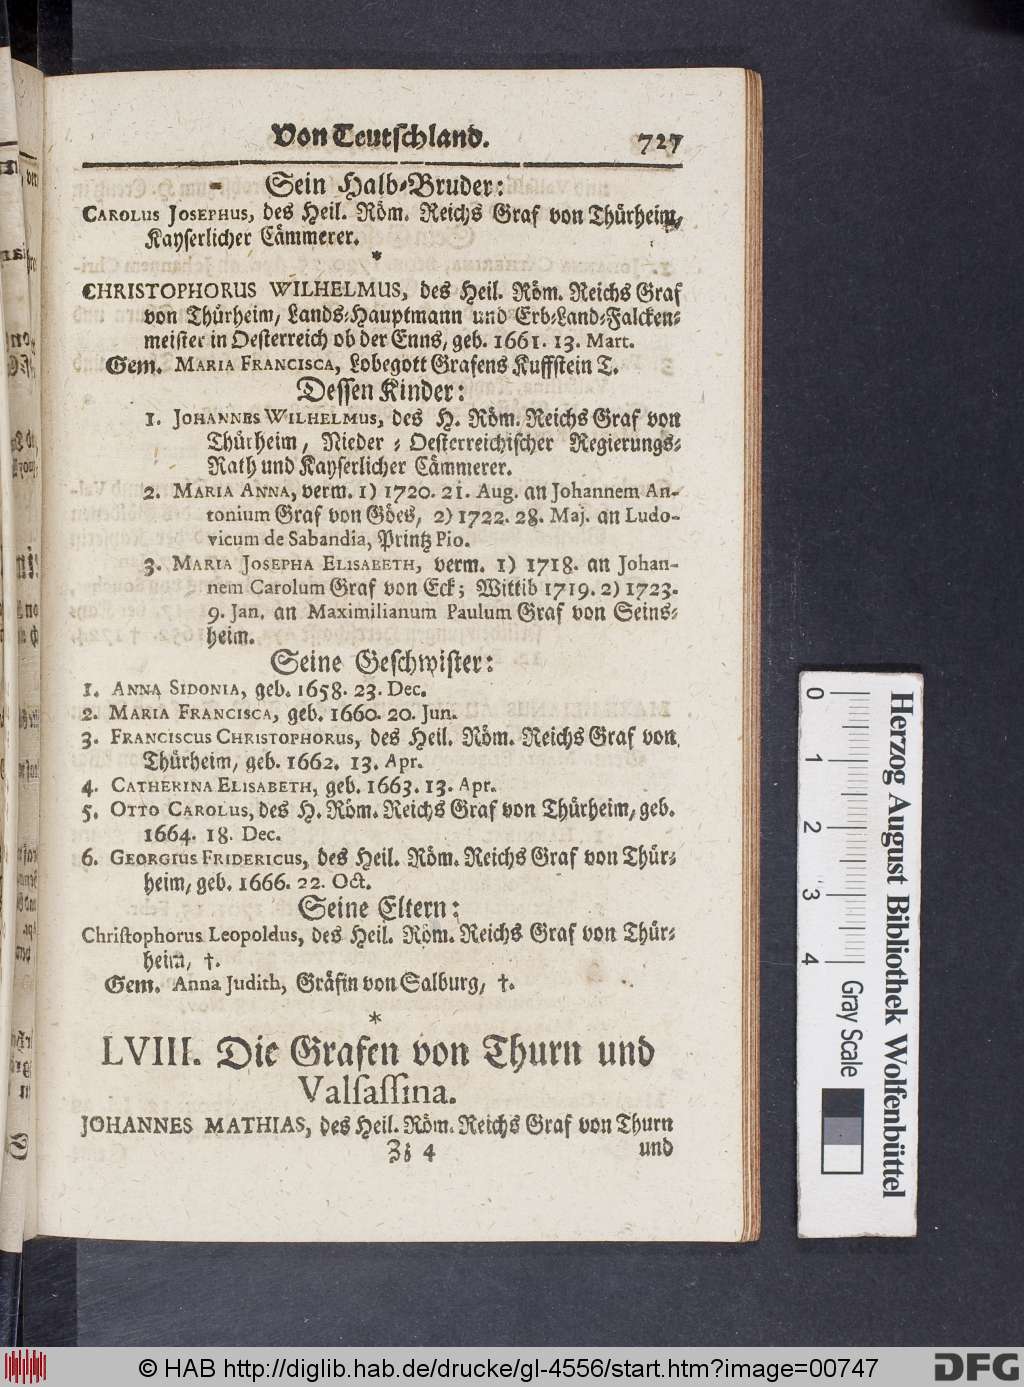 Von Teutschland. 727
Sein Halb-Bruder:
CAROLUS JOSEPHUS, des Heil. Röm. Reichs Graf von Thürheim,
Kayserlicher Cämmerer.
*
CHRISTOPHORUS WILHELMUS, des Heil. Röm. Reichs Graf
von Thürheim, Lands-Hauptmann und Erb-Land-Falcken-
meister in Oesterreich ob der Enns, geb. 1661. 13. Mart.
Gem. MARIA FRANCISCA, Lobegott Grafens Kuffstein T.
Dessen Kinder:
1. JOHANNES WILHELMUS, des H. Röm. Reichs Graf von
Thürheim, Nieder-Oesterreichischer Regierungs-
Rath und Kayserlicher Cämmerer.
2. MARIA ANNA, verm. 1) 1720. 21. Aug. an Johannem An-
tonium Graf von Göes, 2) 1722. 28. Maj. an Ludo-
vicum de Sabandia, Printz Pio.
3. MARIA JOSEPHA ELISABETH, verm. 1) 1718. an Johan-
nem Carolum Graf von Eck; Wittib 1719. 2) 1723.
9. Jan. an Maximilianum Paulum Graf von Seins-
heim.
Seine Geschwister:
1. ANNA SIDONIA, geb. 1658. 23. Dec.
2. MARIA FRANCISCA, geb. 1660. 20. Jun.
3. FRANCISCUS CHRISTOPHORUS, des Heil. Röm. Reichs Graf von
Thürheim, geb. 1662. 13. Apr.
4. CATHERINA ELISABETH, geb. 1663. 13. Apr.
5. OTTO CAROLUS, des H. Röm. Reichs Graf von Thürheim, geb.
1664. 18. Dec.
6. GEORGIUS FRIDERICUS, des Heil. Röm. Reichs Graf von Thür-
heim, geb. 1666. 22. Oct.
Seine Eltern:
Christophorus Leopoldus, des Heil. Röm. Reichs Graf von Thür-
heim, †.
Gem. Anna Judith, Gräfin von Salburg, †.
*
LVIII. Die Grafen von Thurn und
Valsassina.
JOHANNES MATHIAS, des Heil. Röm. Reichs Graf von Thurn
Zz 4 und
0 1 2 3 4
Herzog August Bibliothek Wolfenbüttel
Gray Scale
© HAB http://diglib.hab.de/drucke/gl-4556/start.htm?image=00747
DFG